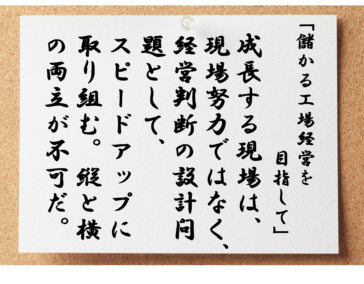 「儲かる工場経営を
目指して」
成長する現場は、
現場努力ではなく、
経営判断の設計問
題として、
スピードアップに
取り組む。縦と横
の両立が不可だ。